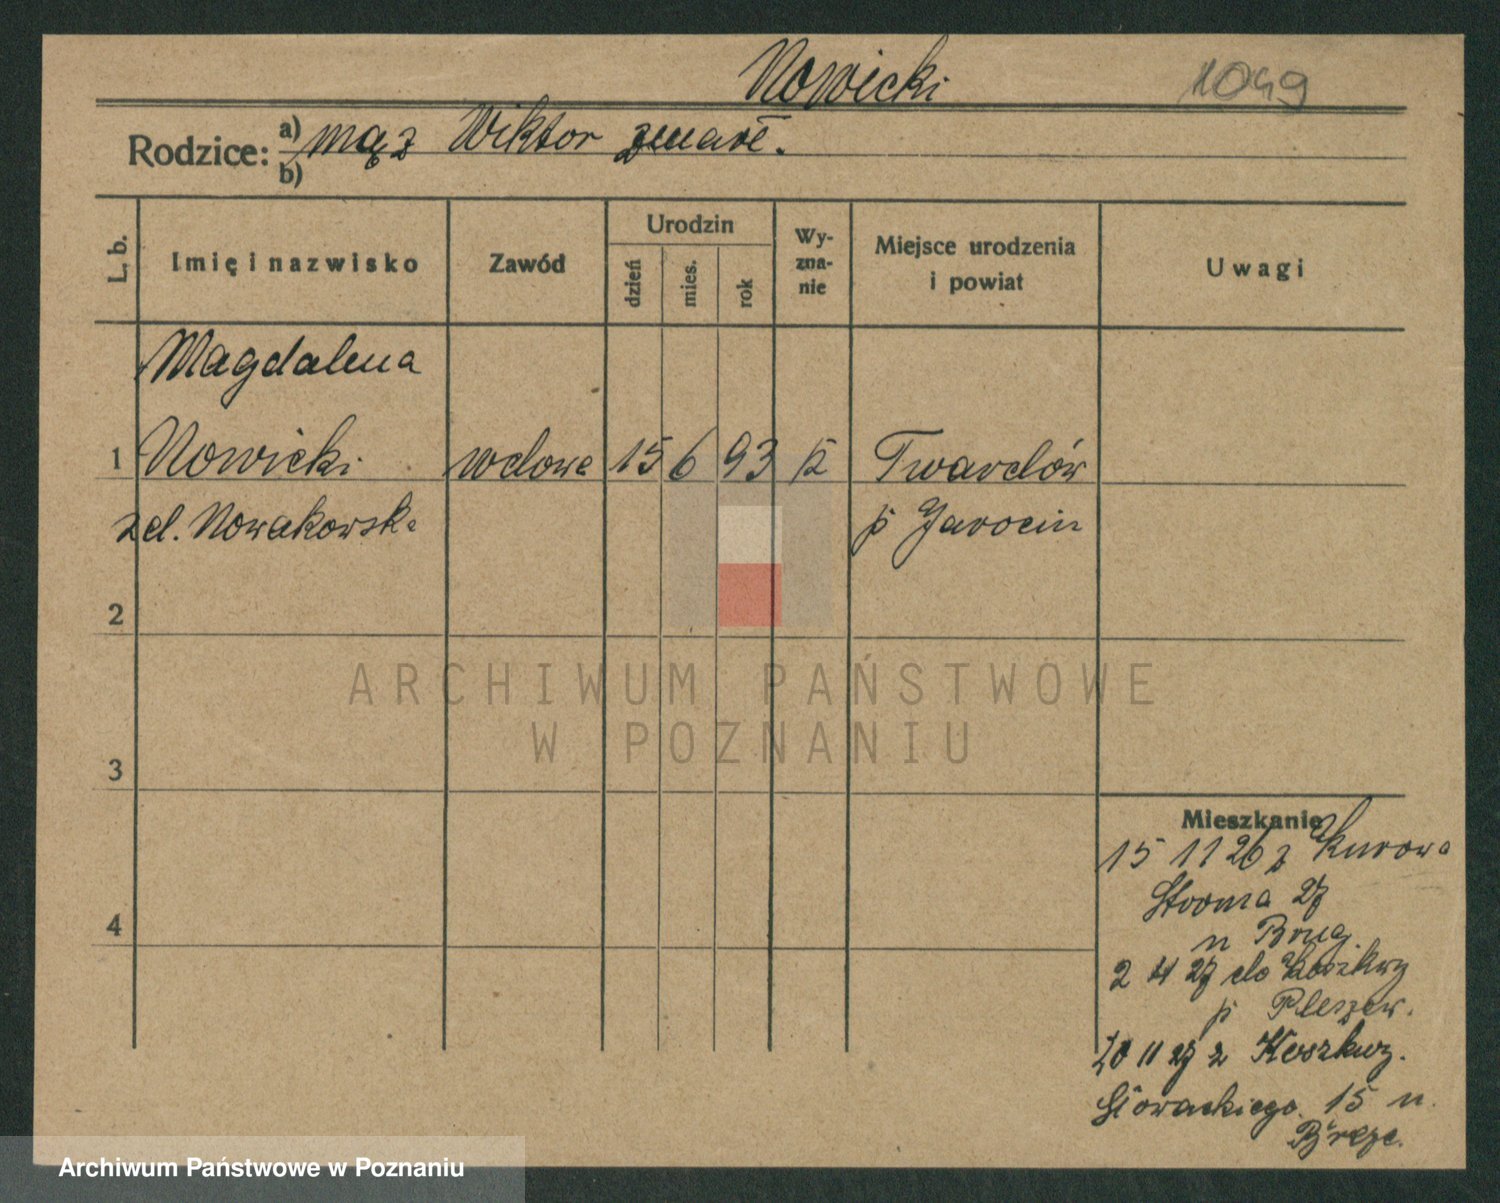 Nowicki 1049
Rodzice: a) mąż Wiktor zmarł.
b)
L. b.
Imię i nazwisko
Zawód
Urodzin
dzień
mies.
rok
Wy-
zna-
nie
Miejsce urodzenia
i powiat
Uwagi
Magdalena
1 Nowicki wdowa 15 6 93 k Twardów
zd. Nowakowska p Jarocin
2
3
4
Mieszkanie
15 11 26 z Kurowa
Stroma 27
u
2 4 27 do Koszkwy
p Pleszew.
20 11 27 z Koszkwy.
Słowackiego 15 u.
ARCHIWUM PAŃSTWOWE
W POZNANIU
Archiwum Państwowe w Poznaniu